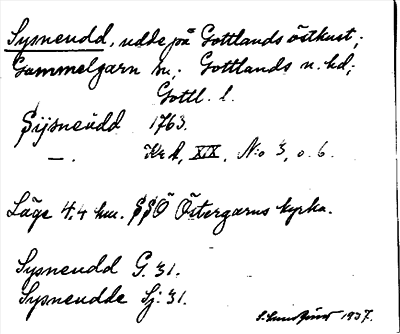 Sysneudd, udde på Gottlands östkust;
Gammelgarn sn; Gottlands n. hd;
Gottl. l.
Sysneudd 1763.
—. XIX, No 3, o. 6.
Läge 4,4 km. SSÖ Östergarns kyrka.
Sysneudd G. 31.
Sysneudde Sj. 31.
1937.